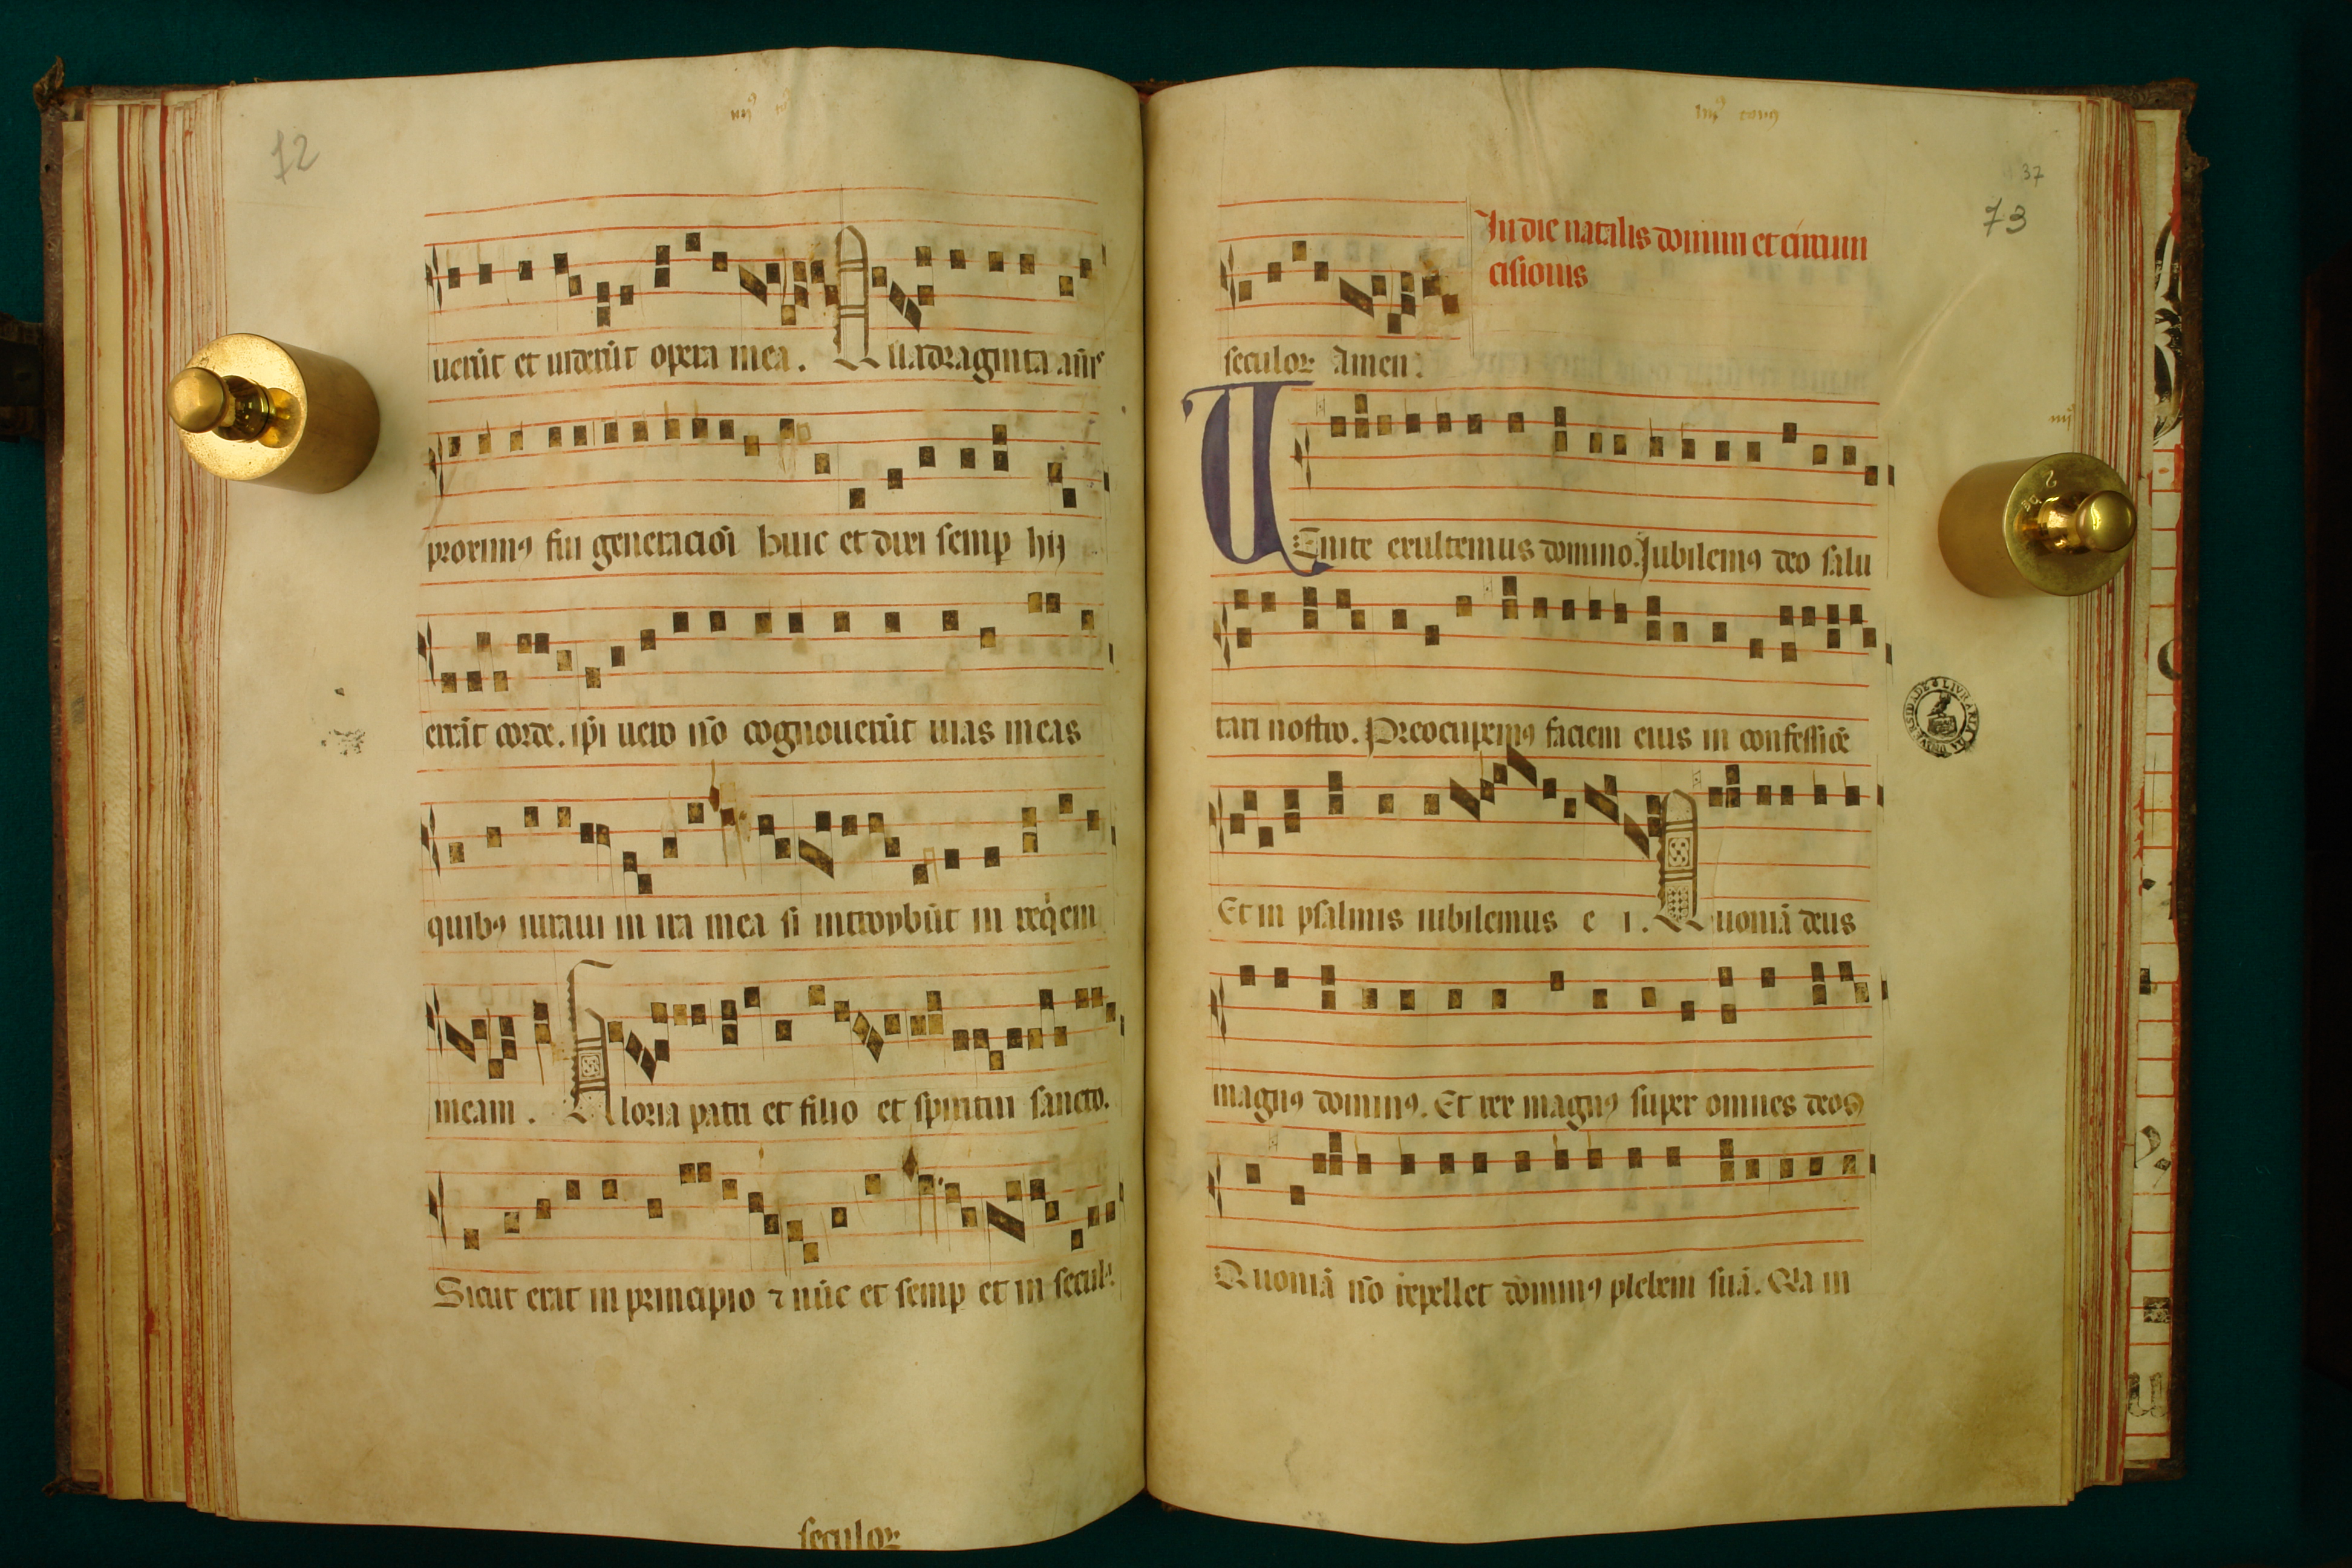 72
iiij⁹ to⁹
uerūt et uiderūt opera mea. Quadraginta ānis
proximꝰ fui generacioī huic et dixi semꝑ hij
errāt corde. ip̄i uero nō cognouerūt uias meas
quibꝰ iuraui in ira mea si introybūt in req̇em
meam. Gloria patri et filio et spiritui sancto.
Sicut erat in principio ⁊ nūc et semꝑ et in secula
seculoꝝ
iiij⁹ tonꝰ
37
73
In die natalis domini et circum
cisionis
seculoꝝ Amen:
UEnite exultemus domino. Jubilemꝰ deo salu
tari nostro. Preocupemꝰ faciem eius in confessiōe
Et in psalmis iubilemus e i. Quoniā deus
magnꝰ dominꝰ. Et rex magnꝰ super omnes deos
Quoniā nō repellet dominꝰ plebem suā. Q̄a in
LIVRARIA DA UNIVERSIDADE